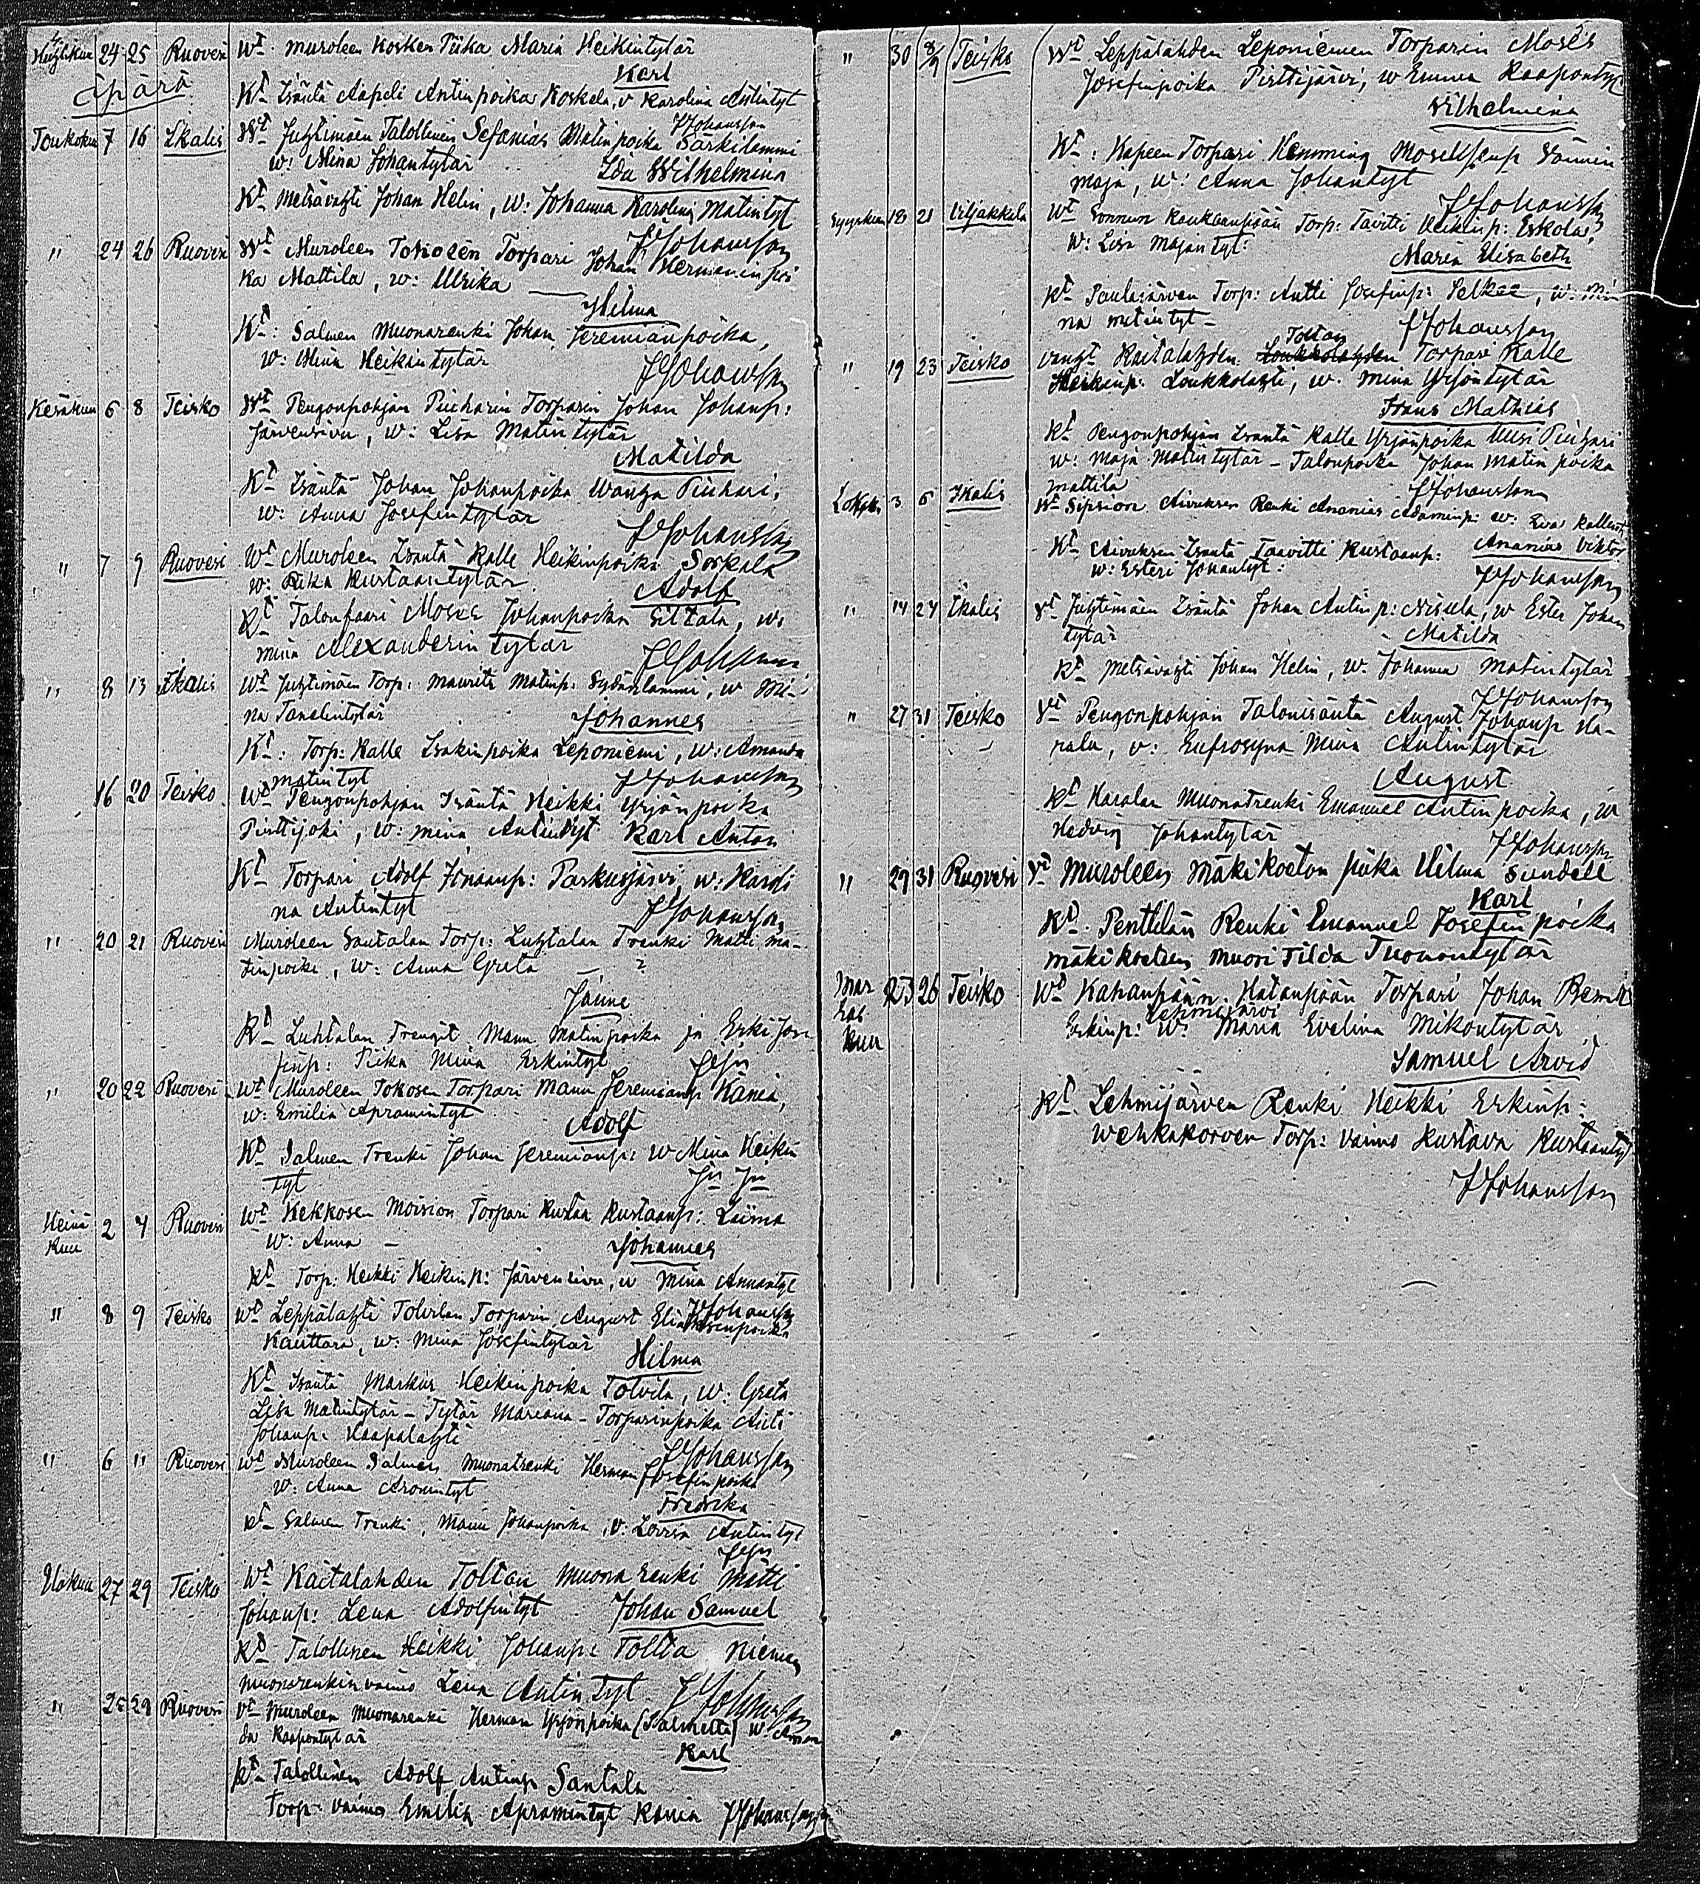 Huhtikuu 24 25 Ruovesi Wt. Muroleen Kosken Piika Maria Heikintytär
Karl
äpärä
Kt Isäntä Aapeli Antinpoika Koskela, v Karolina Antintyt
JJohansson
Toukokuu 7 16 Ikalis Wt Juhtimäen Talollinen Sefanias Matinpoika Särkilammi
w: Mina Johantytär Ida Wilhelmina
Kt Metsävahti Johan Helin, w: Johanna Karolina Matintyt
JJohansson
" 24 26 Ruovesi Wt Muroleen Tokosen Torpari Johan Hermaninpoi
ka Mattila, w: Ulrika —
Hilma
Kt: Salmen Muonarenki Johan Jeremianpoika,
w: Mina Heikintytär
JJohansson
Kesäkuu 6 8 Teisko Wt Pengonpohjan Piiharin Torparin Johan Johanp:
Järvensivu, w: Lisa Matintytär
Matilda
Kt Isäntä Johan Johanpoika Wanha Piihari,
w: Anna Josefintytär
JJohansson
" 7 9 Ruovesi Wt Muroleen Isäntä Kalle Heikinpoika Soskala
w: Rika Kustaantytär
Adolf
Kt Talonfaari Moses Johanpoika Siltala, w:
Mina Alexanderintytär
JJohansson
" 8 13 Ikalis Wt Juhtimäen Torp: Maurits Matinp: Sydänlammi, w Mi-
na Tanelintytär
Johannes
Kt: Torp: Kalle Isakinpoika Leponiemi, w: Amanda
Matintyt JJohansson
16 20 Teisko Wt Pengonpohjan Isäntä Heikki Yrjönpoika
Pirttijoki, w: Mina Antintyt Karl Anton
Kt Torpari Adolf Jonaanp: Parkusjärvi, w: Karoli
na Antintyt JJohansson
" 20 21 Ruovesi Muroleen Santalan Torp: Luhtalan Trenki Matti Ma-
tinpoika, w: Anna Greta — ?
Janne
Kt Luhtalan Trengit Manu Matinpoika ja Erki Jose
finp: Piika Mina Erkintyt JJsn
" 20 22 Ruovesi Wt Muroleen Tokosen Torpari Manu Jeremianp Kania,
w: Emilia Apramintyt
Adolf
Kt Salmen Trenki Johan Jeremianp: w Mina Heikin
tyt JJsn
Heinä
Kuu 2 4 Ruovesi Wt Kekkosen Moision Torpari Kustaa Kustaanp: Laima
w: Anna — Johannes
Kt Torp: Heikki Heikinp: Järvensivu, w Mina Annantyt
JJohansson
" 8 9 Teisko Wt Leppälahti Tolvilan Torparin August Eliaksenpoika
Kauttara, w: Mina Josefintytär
Hilma
Kt Isäntä Markus Heikinpoika Tolvila, w: Greta
Lisa Matintytär - Tytär Mariana - Torparinpoika Anti
Johanp: Haapalahti
JJohansson
" 6 11 Ruovesi Wt Muroleen Salmen Muonatrenki Herman Josefinpoika
w: Anna Aronintyt
Fredrika
Kt Salmen Trenki, Manu Johanpoika, v: Lovisa Antintyt
JJsn
Elokuu 27 29 Teisko Wt Kaitalahden Toltan Muonarenki Matti
Johanp: Lena Adolfintyt Johan Samuel
Kt Talollinen Heikki Johanp: Tolta Niemen
muonarenkinvaimo Lena Antintyt JJohansson
" 28 29 Ruovesi Vt Muroleen Muonarenki Herman Yrjönpoika (Salmelta) w Aman
da Kaapontytär
Karl
Kt Talollinen Adolf Antinp Santala
Torp: vaimo Emilia Apramintyt Kania JJohansson
" 30 8/9 Teisko Wt Leppälahden Leponiemen Torparin Moses
Josefinpoika Pirttijärvi, w Emma Kaapontyt
Vilhelmina
Kt: Kapeen Torpari Hemming Väinin
maja, w: Anna Johantyt
JJohansson
Syyskuu 18 21 Viljakkala Wt Sonnun Kaukaanpään Torp: Taavitti Heikinp: Eskola,
w: Lisa Majantyt:
Maria Elisabeth
Kt Paulajärven Torp: Antti Josefinp: Selkee, w: Mi
na Matintyt - JJohansson
" 19 23 Teisko Vanht Kaitalahden Toltan Torpari Kalle
Heikinp: Loukkolahti, w: Mina Yrjöntytär
Frans Mathias
Kt Pengonpohjan Isäntä Kalle Yrjönpoika Uusi Piihari
w: Maja Matintytär - Talonpoika Johan Matinpoika
Mattila
JJohansson
Lokak. 3 6 Ikalis Wt Sipsion Aivuksen Renki Ananias Adaminp: w: Eva Kallentyt
Ananias Viktor
Kt Aivuksen Isäntä Taavitti Kustaanp:
w: Esteri Johantyt: JJohansson
" 14 24 Ikalis Vt Juhtimäen Isäntä Johan Antinp: Nisula, w Ester Johan
tytär - Matilda
Kt Metsävahti Johan Helin, w. Johanna Matintytär
JJohansson
" 27 31 Teisko Vt Pengonpohjan Talonisäntä August Johanp Ha-
rala, v: Eufrosyna Mina Antintytär
August
Kt Haralan Muonatrenki Emanuel Antinpoika, w
Hedvig Johantytär
JJohansson
" 29 31 Ruovesi Vt Muroleen Mäkikoeton piika Hilma Sundell
Karl
Kt. Penttilän Renki Emanuel Josefinpoika
Mäkikoeton muori Tilda Tuomontytär
Mar
ras
kuu 23 26 Teisko Wt Kahanpään Hatanpään Torpari Johan Berndt
Erkinp: Lehmijärvi w: Maria Evelina Mikontytär
Samuel Arvid
Kt. Lehmijärven Renki Heikki Erkinp:
Wehkakorven Torp: vaimo Kustava Kustaantyt
JJohansson